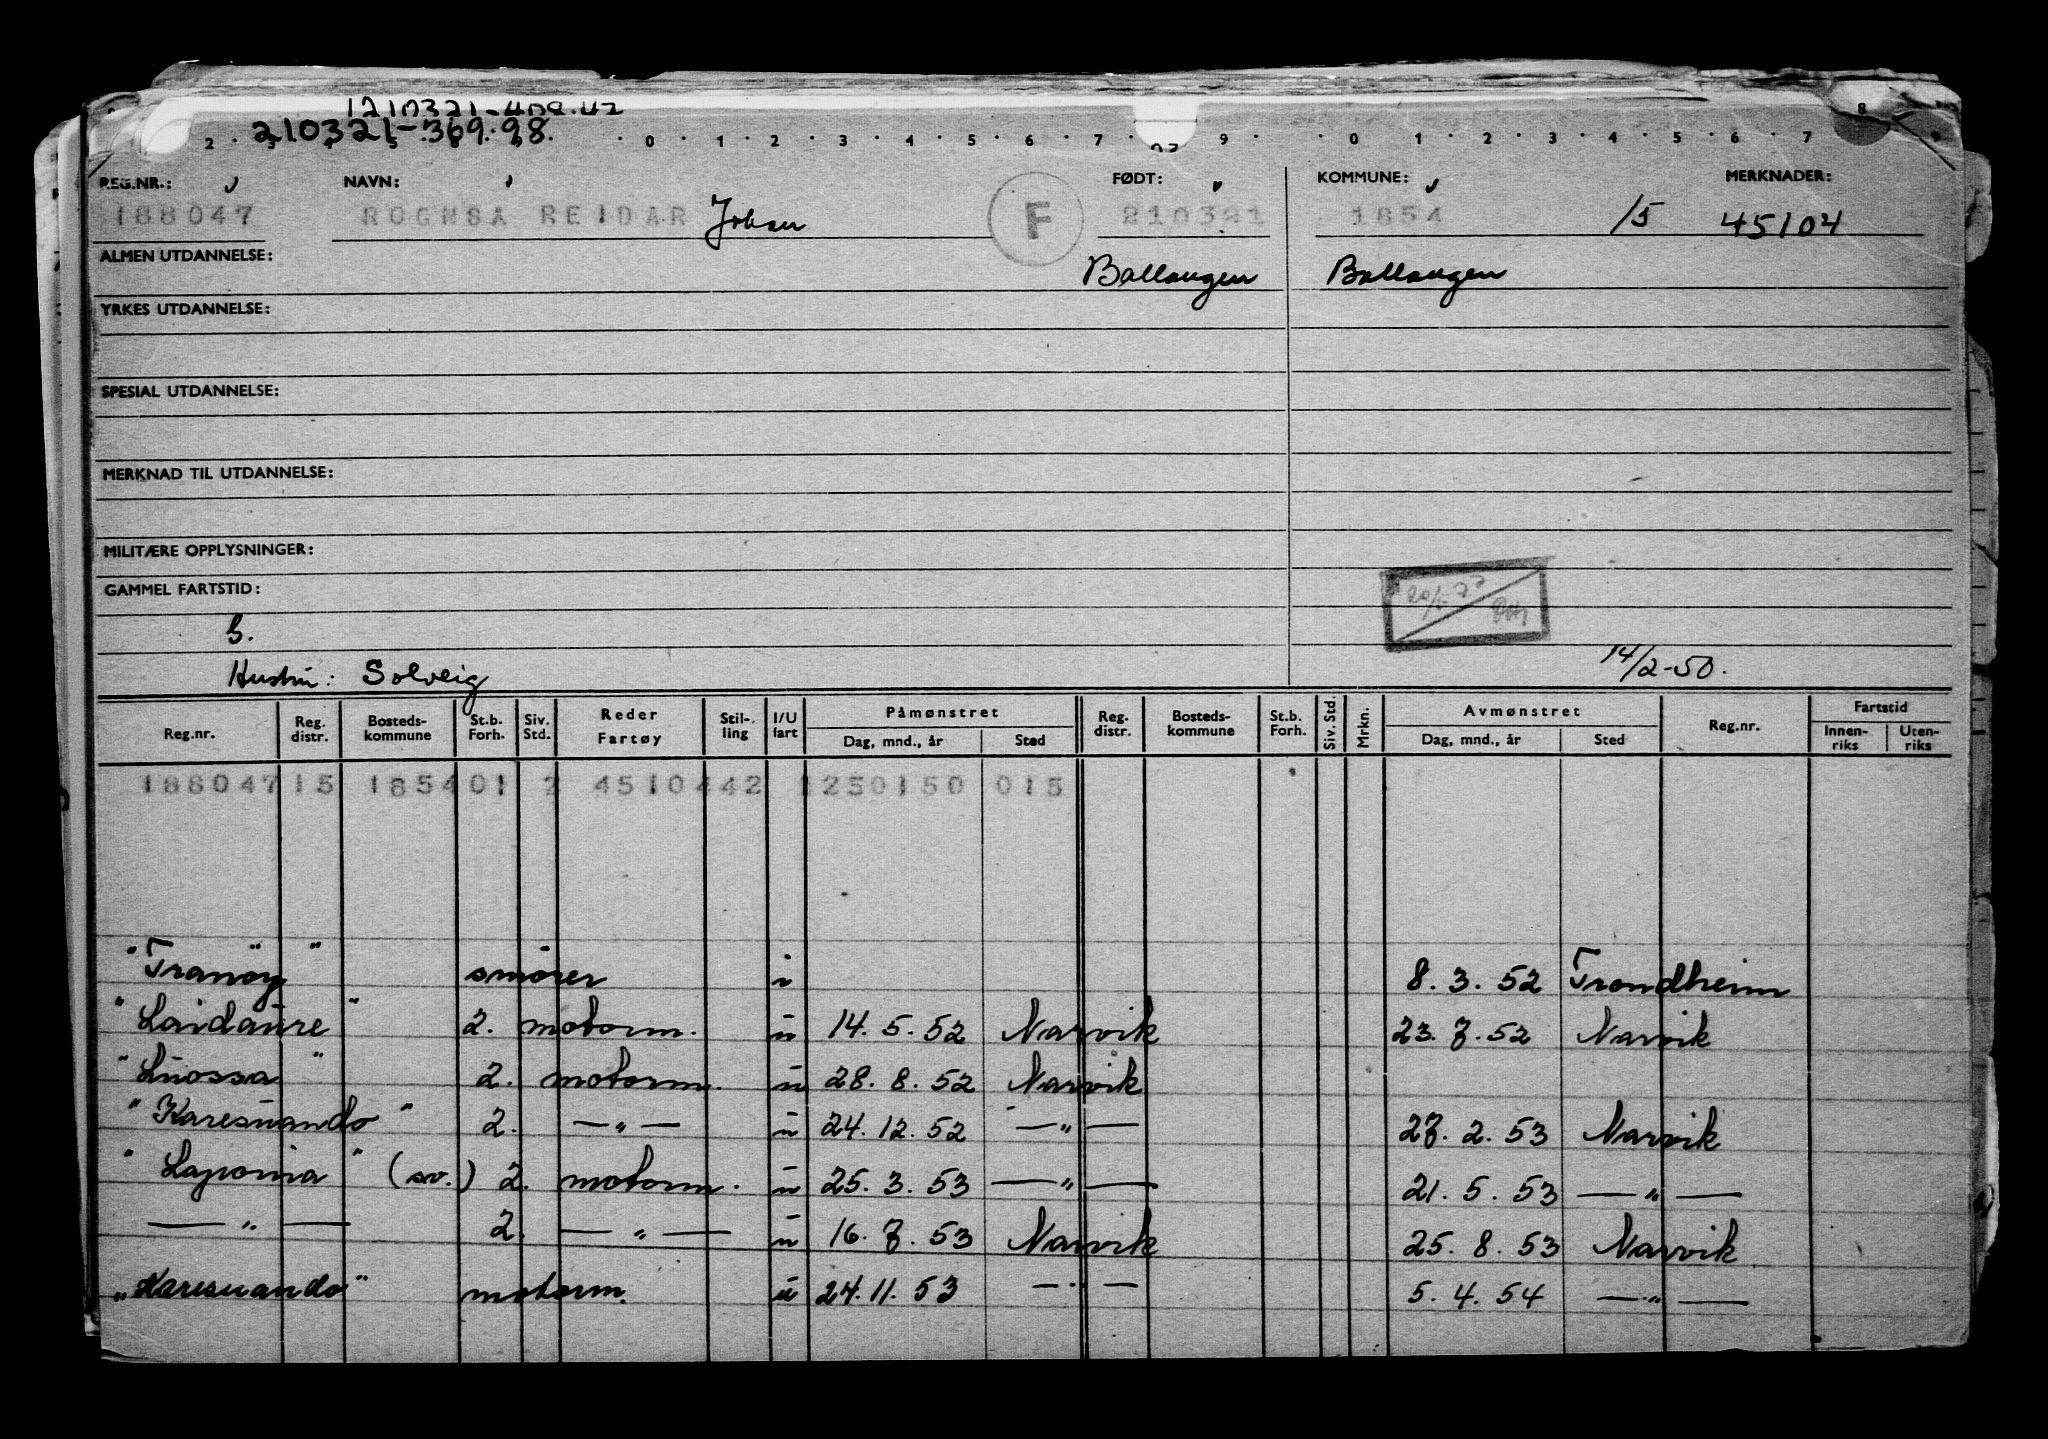 210321-369.98.
2 . 3 . 4 . 5 . 6 . . 0 . 1 . 2 . 3 . 4 . 5 . 6 . 7 . 9 . . 0 . 1 . 2 . 3 . 4 . 5 . 6 . 7 8
REG.NR.: NAVN: FØDT: KOMMUNE: MERKNADER:
188047 ROGNSA REIDAR Johan F 210321 1854 15 45104
ALMEN UTDANNELSE: Ballangen Ballangen
YRKES UTDANNELSE:
SPESIAL UTDANNELSE:
MERKNAD TIL UTDANNELSE:
MILITÆRE OPPLYSNINGER:
GAMMEL FARTSTID:
G.
Hustru: Solveig 14/2-50.
Reg.nr. Reg. distr. Bosteds-kommune St.b. Forh. Siv. Std. Reder Fartøy Stil-ling I/U fart Påmønstret Dag, mnd., år Sted Reg. distr. Bosteds-kommune St.b. Forh. Siv. Std. Mrkn. Avmønstret Dag, mnd., år Sted Reg.nr. Fartstid Innen-riks Uten-riks
188047 15 1854 01 2 4510442 1250150 015
"Tranöy" smörer i 8.3.52 Trondheim
"Laidaure" 2. motorm. u 14.5.52 Narvik 23.7.52 Narvik
"Luossa" 2. motorm. u 28.8.52 Narvik
"Karesuando" 2. —"— u 24.12.52 —"— 27.2.53 Narvik
"Laponia" (sv.) 2. motorm. u 25.3.53 —"— 21.5.53 —"—
—"— 2. —"— u 16.7.53 Narvik 25.8.53 Narvik
"Karesuando" motorm. u 24.11.53 —"— 5.4.54 —"—